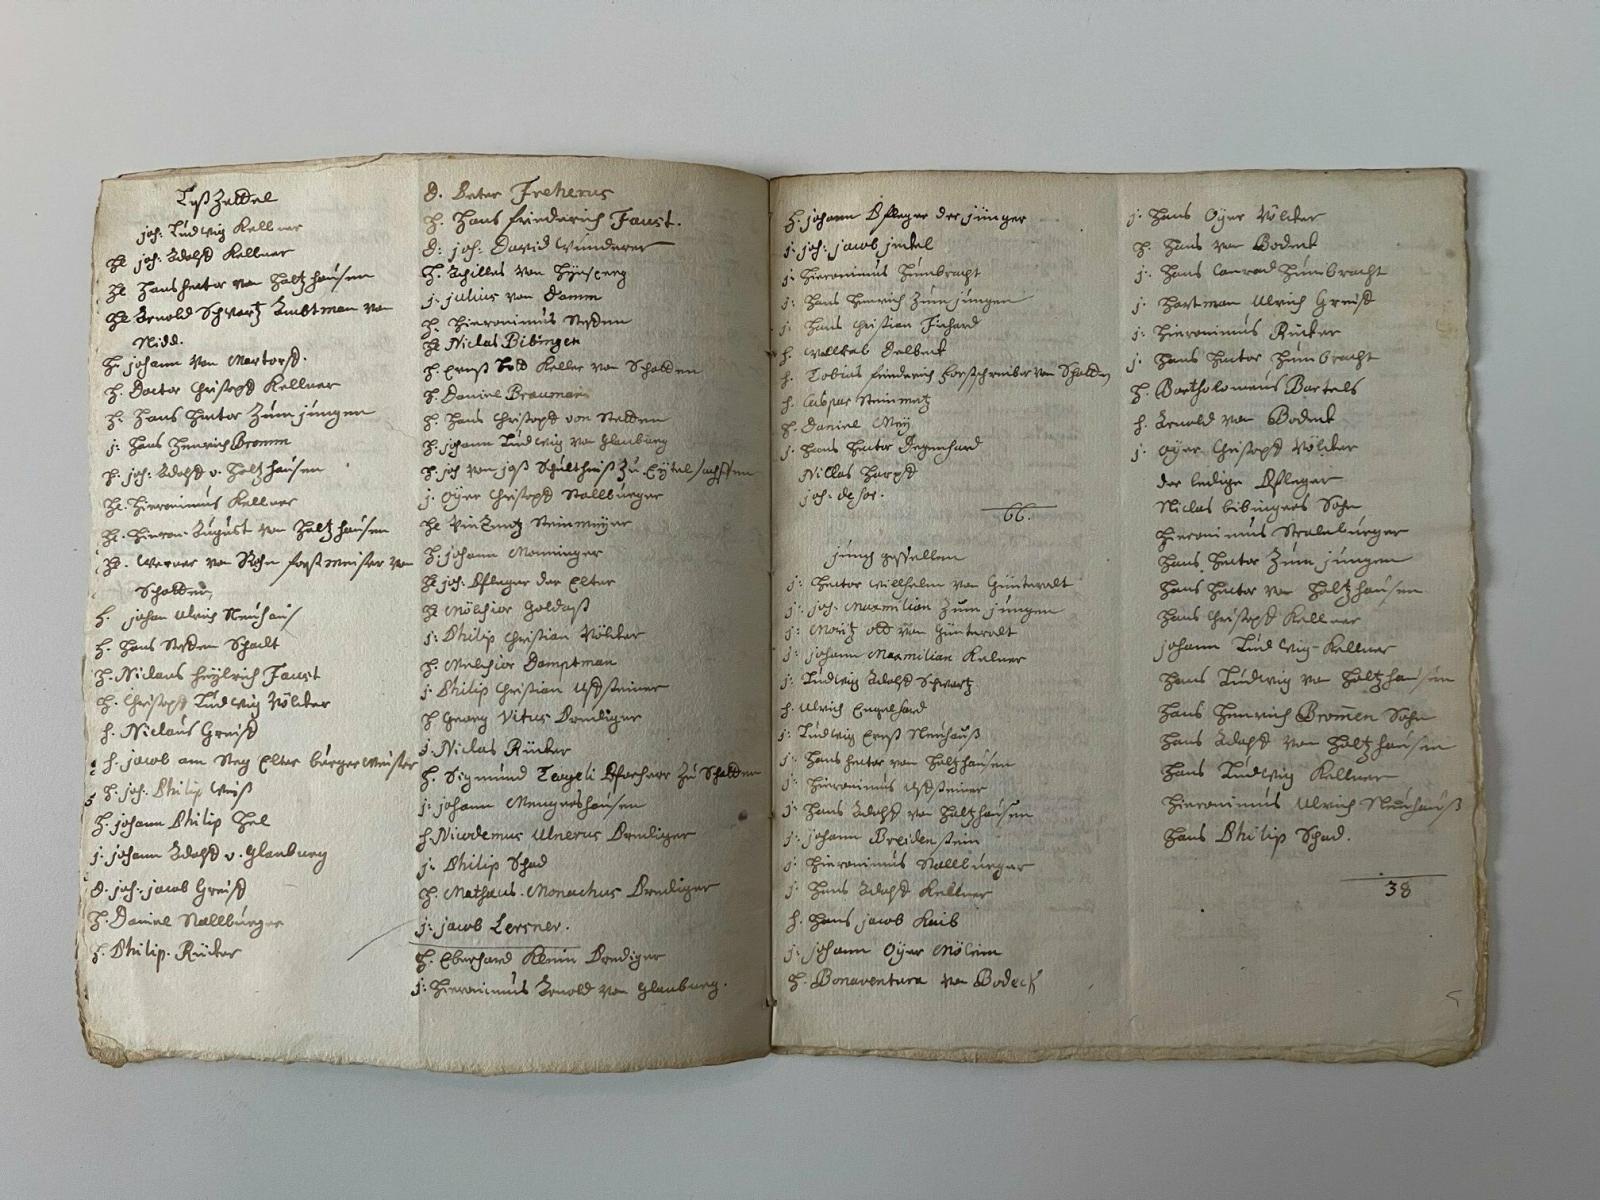 Tischzettel
joh: Ludwig Kellner
H. joh: Adolff Kellner
H. Hans hector von Holtzhausen
H. Arnold Schwartz Ambtman von
Nidd.
H. johann von Martorff.
H. Doctor Christoff Kellner
H. Hans Hector Zum jungen
j: Hans Henrich Bromm
H. joh: Adolff v. Holtzhausen
H. Hieronimus Kellner
H. Hieron: August von Holtzhausen
H. Werner von forstmeister von
H. johan Ulrich Neuhaus
H. Hans Steffen Schadt
H. Niclaus Heylrich Faust
H. Christoff Ludwig Völcker
H. Niclaus Greiff
H. jacob am Steg Elter burgermeister
H. joh: Philip Weiß
H. johann Philip
j. johann Adolff v. Glauburg
D. joh: jacob Greiff
H. Daniel Stallburger
H. Philip Rücker
D. Peter Freherus
H. Hans friederich Faust.
D: joh: David Wunderer
H. Achilles von Hynsperg
j. julius von Damm
H. Hieronimus Steffen
H. Niclas Bibingen
H. Ernst Keller von
H. Daniel Braumann
H. Hans Christoff von Stetten
H. johann Ludwig von Glauburg
H. joh von joß Schultheiß Zu
j. Oyer Christoff Stallburger
H. Vincentz Steinmeyer
H. johann Monninger
H. joh: Pfleger der Elter
H. Mölchior Goldast
j: Philip Christian Völcker
H. Melchior Damptman
j. Philip Christian Uffsteiner
H. Georg Vitus Prediger
j. Niclas Rücker
H. Sigmund Pfarherr Zu
j: johann Mengershausen
H. Nicodemus Ulnerus Prediger
j: Philip Schad
H. Mathaus Monachus Prediger
j: jacob Lersner.
H. Eberhard Klein Prediger
j: Hieronimus Arnold von Glauburg.
H. johann Pfleger der jünger
j. joh: jacob jeckel
j: Hieronimus Humbracht
j: Hans Henrich Zum jungen
j: Hans Christian Fichard
H. Delbeck
H. Tobias friederich forstschreiber von
H. Caspar Steinmetz
H. Daniel Mey
j. Hans Hector Degenhard
Niclas Harpff
joh:
66.
jung gesellen
j: Hector Willhelm von Günterott
j: joh: Maxmilian Zum jungen
j: Moritz ott von Günterott
j: johann Maxmilian Kelner
j: Ludwig Adolff Schwartz
H. Ulrich Engelhard
j: Ludwig Ernst Neuhauß
j: Hans hector von Holtzhausen
j: Hieronimus Uffsteiner
j: Hans Adolff von Holtzhausen
j: johann Breidenstein
j: Hieronimus Stallburger
j: Hans Adolff Kellner
H. Hans jacob Kaib
j: johann Oyer Mölem
H. Bonaventura von Bodeck
j: Hans Oyer Völcker
H. Hans von Bodeck
j: Hans Conrad Humbracht
j: Hartman Ulrich Greiff
j: Hieronimus Rücker
j: Hans Hector Humbracht
H. Bartholomeus Bartels
H. Arnold von Bodeck
j. Oyer Christoff Völcker
der ledige Pfleger
Niclas bibingers Sohn
Hieronimus Stralburger
Hans Hector Zum jungen
Hans Hector von Holtzhausen
Hans Christoff Kellner
johann Ludwig Kellner
Hans Ludwig von Holtzhausen
Hans Henrich Brommen Sohn
Hans Adolff von Holtzhausen
Hans Ludwig Kellner
Hieronimus Ulrich Neuhauß
Hans Philip Schad.
38